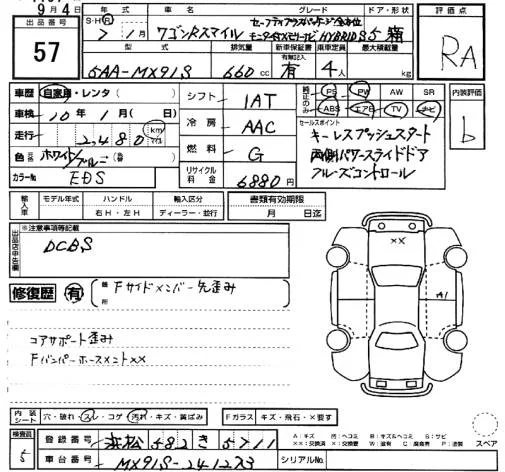 9月4日
出品番号
57
年式 車名 グレード ドア・形状 評価点
S・H・R 7 / 1月 ワゴンRスマイル HYBRID S 5 箱
RA
型式 排気量 新車保証書 乗車定員 最大積載量
有無記入
5AA-MX91S 660 cc 有 4人 kg
車歴 自家用・レンタ ( )
車検 10年1月( )日
走行 2,480 km
色 ホワイト/ブルー
カラーNo EDS
シフト 1AT
冷房 AAC
燃料 G
リサイクル料金 6880円
純正のみ PS PW AW SR
ABS エアB TV ナビ
内装評価
b
セールスポイント
キーレスプッシュスタート
両側パワースライドドア
クルーズコントロール
輸入車 モデル年式 ハンドル 輸入区分 書類有効期限
右H・左H ディーラー・並行 月 日迄
出品店申告欄 ※注意事項等記載
DCBS
修復歴 有 箇所 Fサイドメンバー先歪み
コアサポート歪み
Fバンパーホースメント××
××
A1
内装シート 穴・破れ・スレ・コゲ 汚れ・キズ・黄ばみ Fガラス キズ・飛石・×要す
検査員 5
登録番号 浜松 582 き 5711
車台番号 MX91S-241223 シリアルNo.
A:キズ 凹:ヘコミ B:キズ&ヘコミ S:サビ
××:交換済 ×:要交換 W:補修跡 C:腐食 P:塗装
スペア